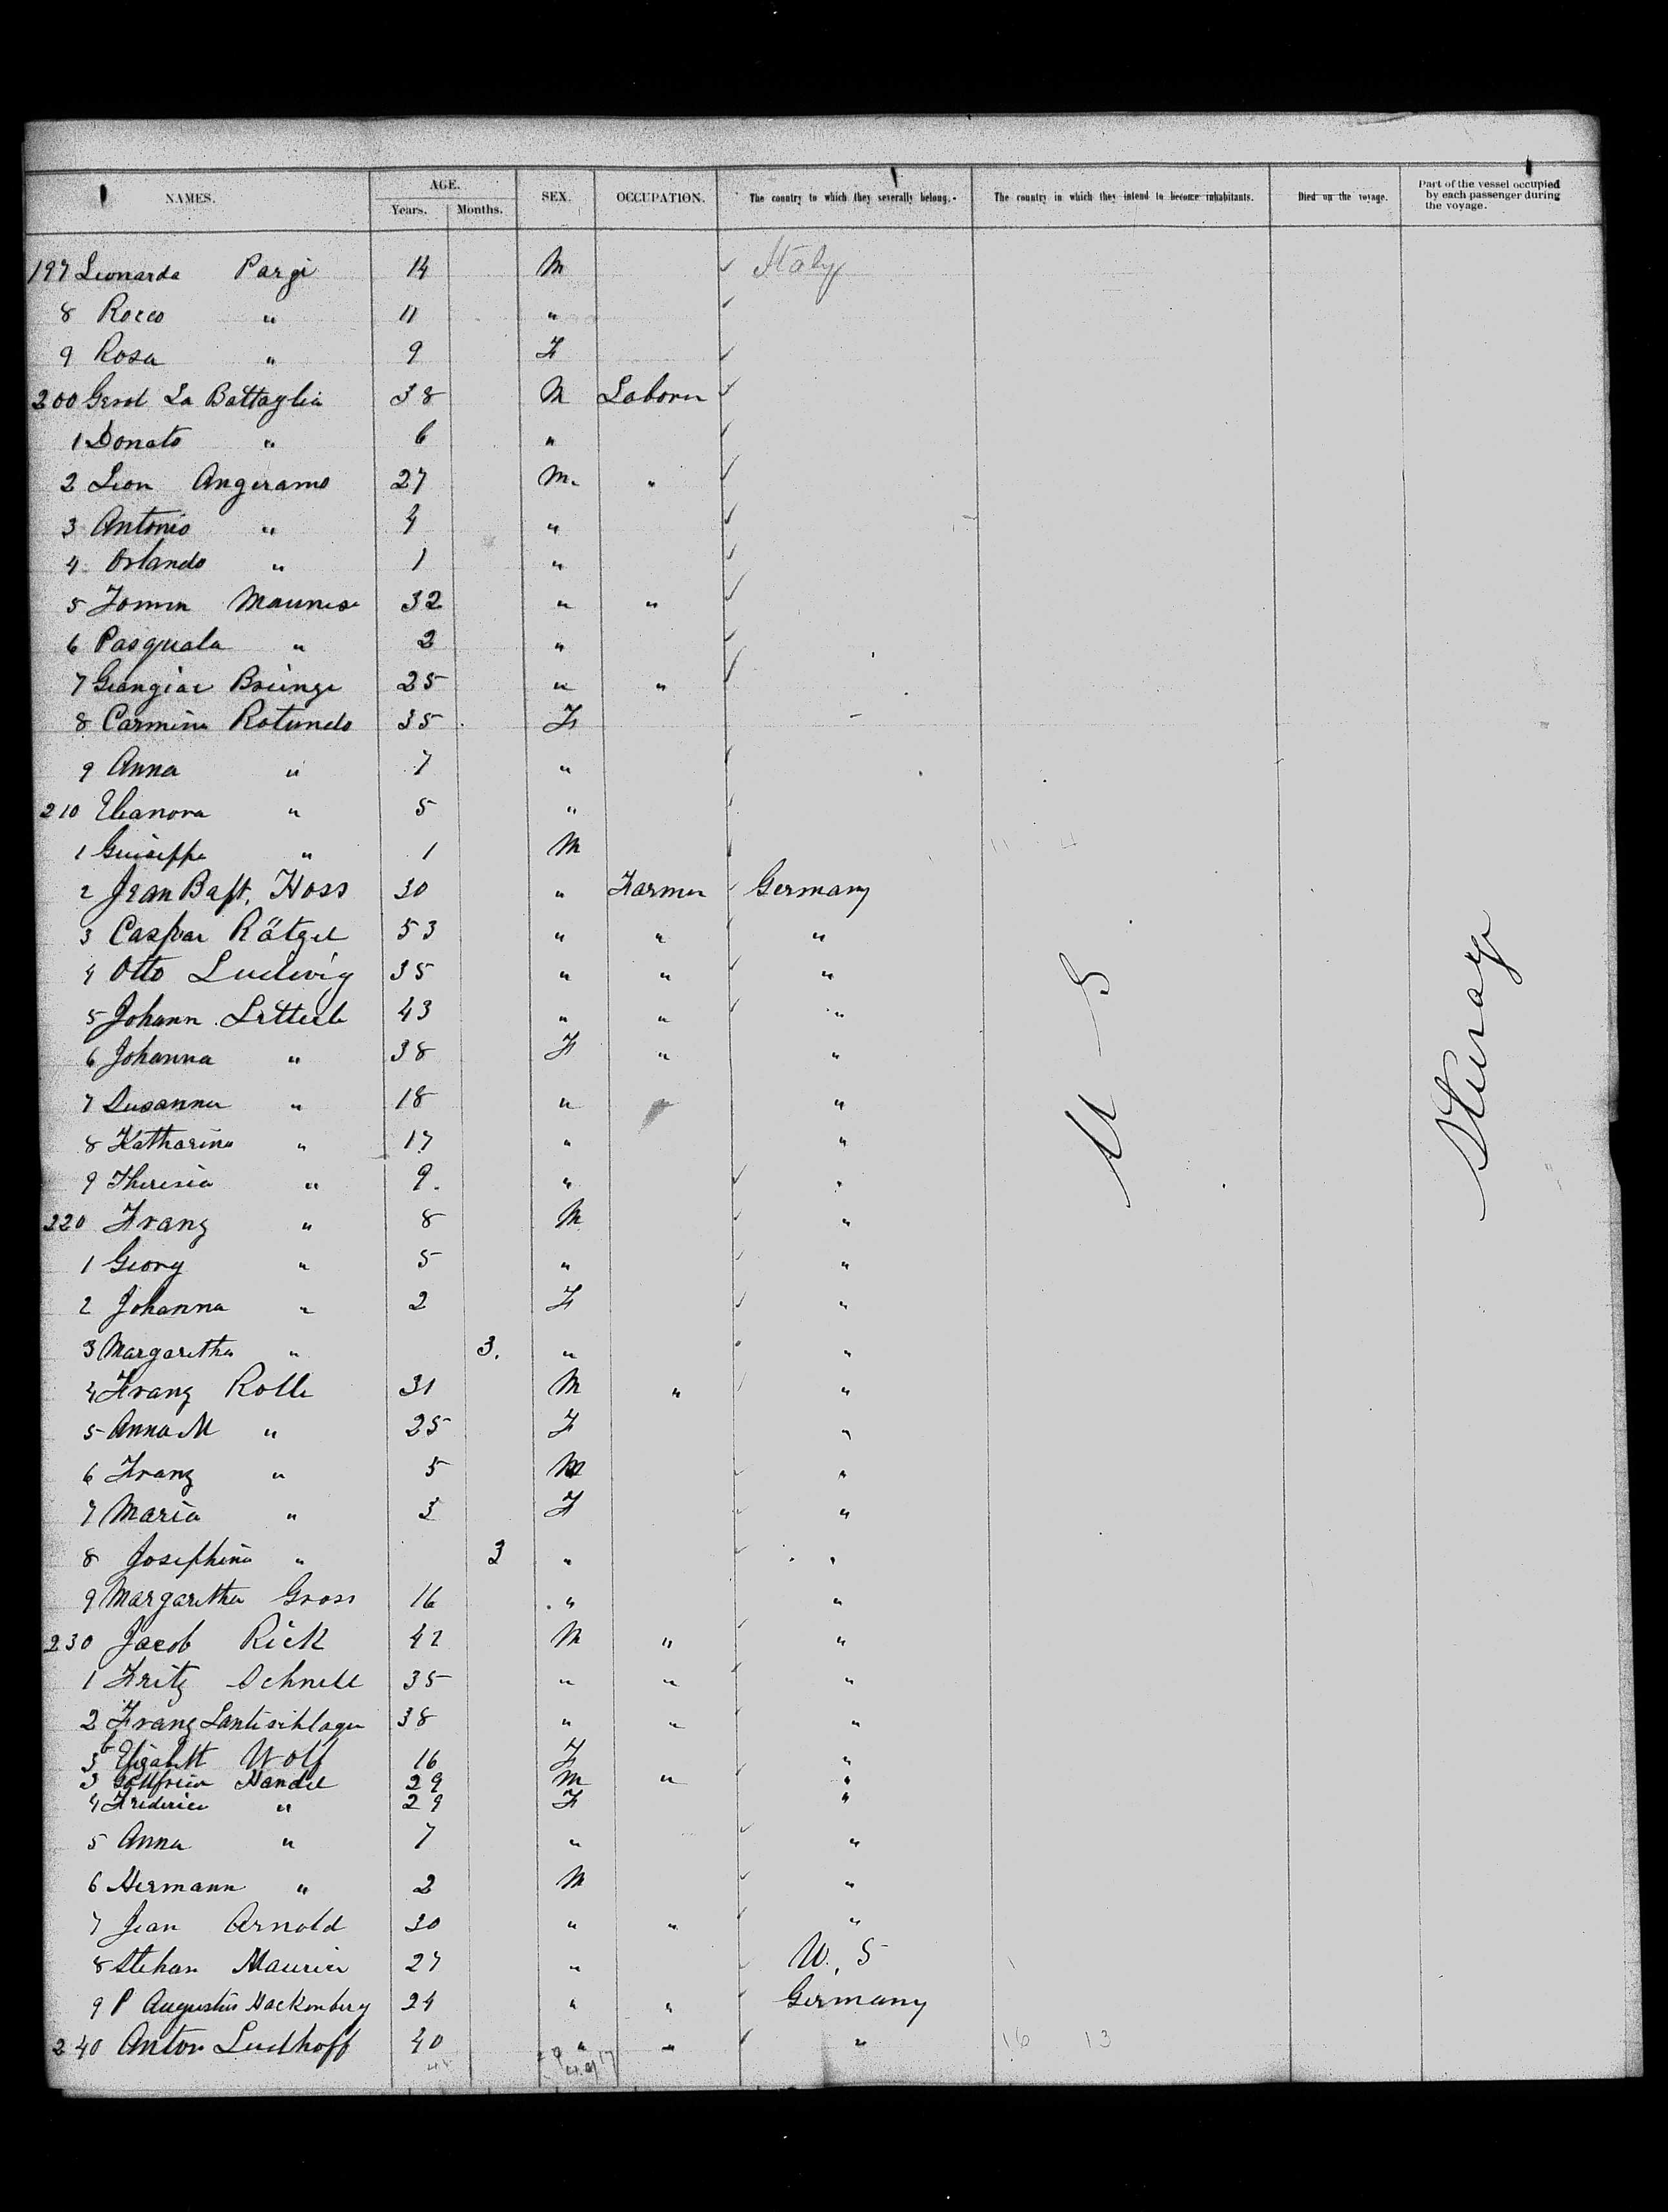 NAMES. AGE. SEX. OCCUPATION. The country to which they severally belong. The country in which they intend to become inhabitants. Died on the voyage. Part of the vessel occupied by each passenger during the voyage.
Years. Months.
197 Leonarda Pargi 14 M Italy
8 Rocco " 11 "
9 Rosa " 9 F
200 Gerol La Battaglia 38 M Laborer
1 Donato " 6 "
2 Leon Angeramo 27 M. "
3 Antonio " 4 "
4 Orlando " 1 "
5 32 " "
6 Pasquala " 2 "
7 25 " "
8 Carmina Rotundo 35 F
9 Anna " 7 "
210 Eleanora " 5 "
1 Guiseppe " 1 M
2 Jean Bapt. Hoss 30 " Farmer Germany
3 Caspar Rötzel 53 " " "
4 Otto Ludwig 35 " " "
5 Johann 43 " " "
6 Johanna " 38 F " "
7 Susanna " 18 " "
8 Katharina " 17 " "
9 Theresia " 9. " "
220 Franz " 8 M "
1 Georg " 5 " "
2 Johanna " 2 F "
3 Margaretha " 3. " "
4 Franz Rolle 31 M " "
5 Anna M " 25 F "
6 Franz " 5 M "
7 Maria " 3 F "
8 Josephina " 3 " "
9 Margaretha Gross 16 " "
230 Jacob Rick 42 M " "
1 Fritz Schnell 35 " " "
2 Franz 38 " " "
3 Elizabett Wolf 16 F "
3 Gottfried Handel 29 M " "
4 Frederica " 29 F "
5 Anna " 7 " "
6 Hermann " 2 M "
7 Jean Arnold 30 " " "
8 Maurier 27 " U. S
9 P Augustus Hackenberg 24 " " Germany
240 Anton Ludhoff 40 " " " 16 13
U S
Steerage